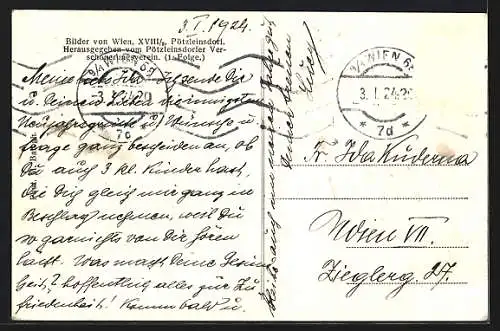 3. I. 1924.
Bilder von Wien. XVIII/2. Pötzleinsdorf.
Herausgegeben vom Pötzleinsdorfer Ver-
schönerungsverein. (1. Folge.)
Meine liebe Ida! Sende Dir
u. Deinen Lieben die innigsten
Neujahrsgrüße u. Wünsche u.
frage ganz bescheiden an, ob
Du auch 3 kl. Kinder hast,
die Dich gleich mir ganz in
Beschlag nehmen, weil Du
so garnichts von Dir hören
läßt. Was macht Deine Gesund
heit? hoffentlich alles zur Zu
friedenheit! Komm bald u.
Lucy
9/1 WIEN 69
-3. I. 24. 20
* 7d *
9/1 WIEN 69
3. I. 24. 20
* 7d *
Fr. Ida Kuderna
Wien VII.
Zieglerg. 27.